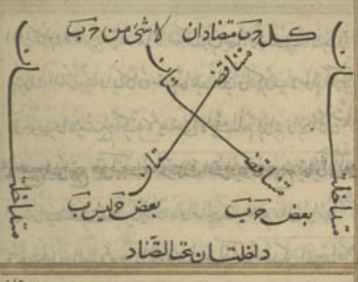 كل ج ب متضادان لا شئ من ج ب
متداخلتان
متناقضتان
متناقضتان
متداخلتان
بعض ج ب بعض ج ليس ب
داخلتان تحت التضاد